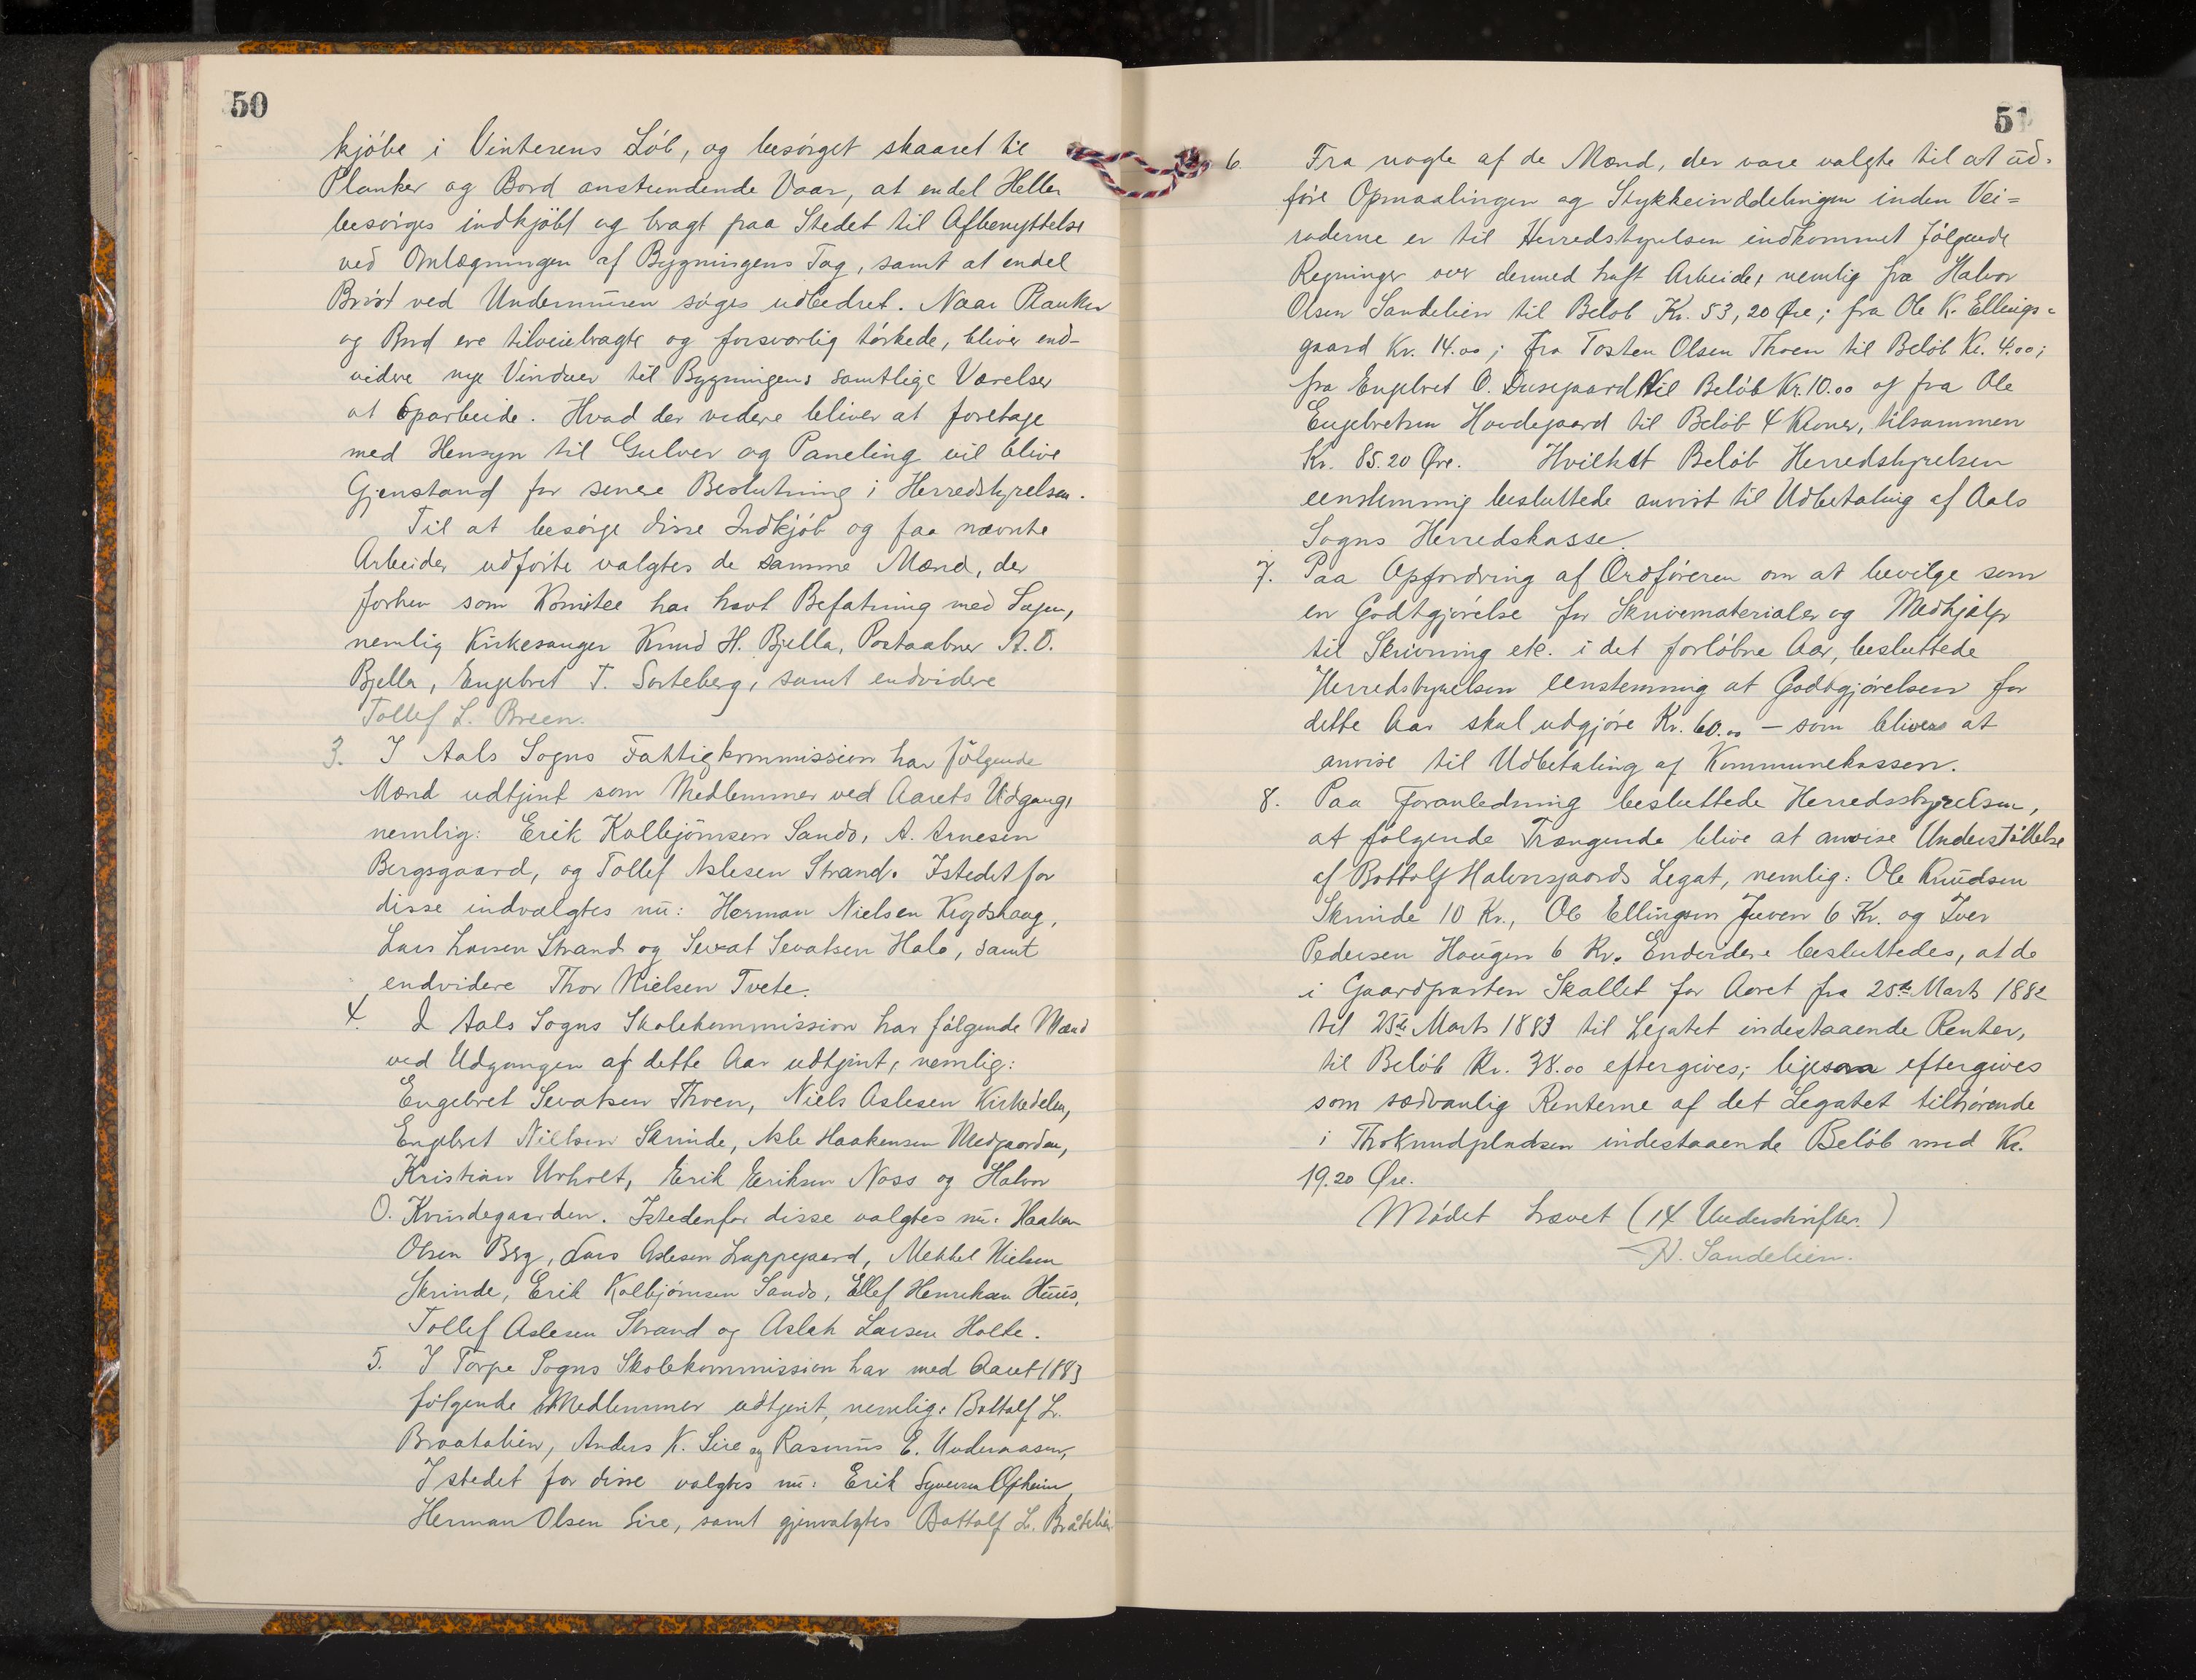 50
kjöbe i Vinterens Löb, og besörget skaaret til
Planker og Bord anstundende Vaar, at endel Heller
besörges indkjöbt og bragt paa Stedet til Afbenyttelse
ved Omlægningen af Bygningens Tag, samt at endel
Bröst ved Undermuren söges udbedret. Naar Planker
og Bord ere tilveiebragte og forsvarlig törkede, bliver end-
videre nye Vinduer til Bygningens samtlige Værelser
at oparbeide. Hvad der videre bliver at foretage
med Hensyn til Gulver og Paneling vil blive
Gjenstand for senere Beslutning i Herredstyrelsen.
Til at besörge disse Indkjöb og faa nævnte
Arbeider udförte valgtes de samme Mænd, der
forhen som Komitee har havt Befatning med Sagen,
nemlig Kirkesanger Knud H. Bjella, Postaabner A. O.
Bjella, Engebret T. Sorteberg, samt endvidere
Tollef L. Breen.
3. I Aals Sogns Fattigkommission har fölgende
Mænd udtjent som Medlemmer ved Aarets Udgang,
nemlig: Erik Kolbjörnsen Sando, A. Arnesen
Bergsgaard, og Tollef Aslesen Strand. Istedet for
disse indvalgtes nu: Herman Nielsen
Lars Larsen Strand og Sevat Sevatsen Hale, samt
endvidere Thor Nielsen Tvete.
4. I Aals Sogns Skolekommission har fölgende Mænd
ved Udgangen af dette Aar udtjent, nemlig:
Engebret Sevatsen Thoen, Niels Aslesen Kirkedelen,
Engebret Nielsen Skrinde, Asle Haakensen Medgaarden,
Kristian Urholt, Erik Eriksen Noss og Halvor
O. Kvindegaarden. Istedenfor disse valgtes nu: Haaken
Olsen Berg, Lars Aslesen Lappegaard, Mekkel Nielsen
Skrinde, Erik Kolbjörnsen Sando, Ellef Henriksen Huus,
Tollef Aslesen Strand og Aslak Larsen Holte.
5. I Torpe Sogns Skolekommission har med Aaret 1883
fölgende Medlemmer udtjent, nemlig: Bottolf L.
Braatalien, Anders K. Sire og Rasmus E. Underaasen,
I stedet for disse valgtes nu: Erik Syversen Opheim,
Herman Olsen Sire, samt gjenvalgtes Bottolf L. Bråtelien
51
6. Fra nogle af de Mænd, der vare valgte til at ud-
före Opmaalingen og Stykkeinddelingen inden Vei=
roderne er til Herredstyrelsen indkommet fölgende
Regninger over dermed haft Arbeide, nemlig fra Halvor
Olsen Sandelien til Belöb Kr. 53,20 Øre; fra Ole K. Ellings=
gaard Kr. 14.00; fra Tosten Olsen Thoen til Belöb Kr. 4.00;
fra Engebret O. Dusegaard til Belöb Kr. 10.00 og fra Ole
Engebretsen Hovdegaard til Belöb 4 Kroner, tilsammen
Kr. 85.20 Øre. Hvilket Belöb Herredstyrelsen
eenstemmig besluttede anvist til Udbetaling af Aals
Sogns Herredskasse.
7. Paa Opfordring af Ordföreren om at bevilge som
en Godtgjörelse for Skrivematerialer og Medhjælp
til Skrivning etc. i det forløbne Aar, besluttede
Herredstyrelsen eenstemmig at Godtgjörelsen for
dette Aar skal udgjöre Kr. 60.00 — som bliver at
anvise til Udbetaling af Kommunekassen.
8. Paa Foranledning besluttede Herredsstyrelsen,
at fölgende Trængende blive at anvise Understöttelse
af Bottolf Halvorsgaards Legat, nemlig: Ole Knudsen
Skrinde 10 Kr., Ole Ellingsen Juven 6 Kr. og Iver
Pedersen Haugen 6 Kr. Endvidere besluttedes, at de
i Gaardparten Skallet for Aaret fra 25de Marts 1882
til 25de Marts 1883 til Legatet indestaaende Renter,
til Belöb Kr. 38.00 eftergives; ligesaa eftergives
som sædvanlig Renterne af det Legatet tilhörende
i Thoknundpladsen indestaaende Belöb med Kr.
19.20 Øre.
Mödet hævet (14 Underskrifter.)
H. Sandelien.